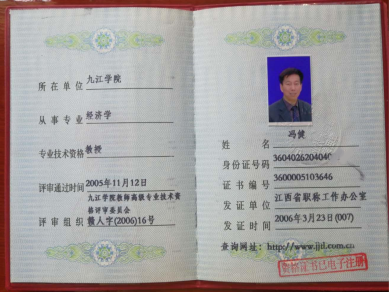 所在单位 九江学院
从事专业 经济学
专业技术资格 教授
评审通过时间 2005年11月12日
九江学院教师高级专业技术资
格评审委员会
评审组织 赣人字(2006)16号
姓名 冯健
身份证号码 3604026204040
证书编号 3600005103646
发证单位 江西省职称工作办公室
发证时间 2006年3月23日(007)
查询网址:http://www.jjtl.com.cn